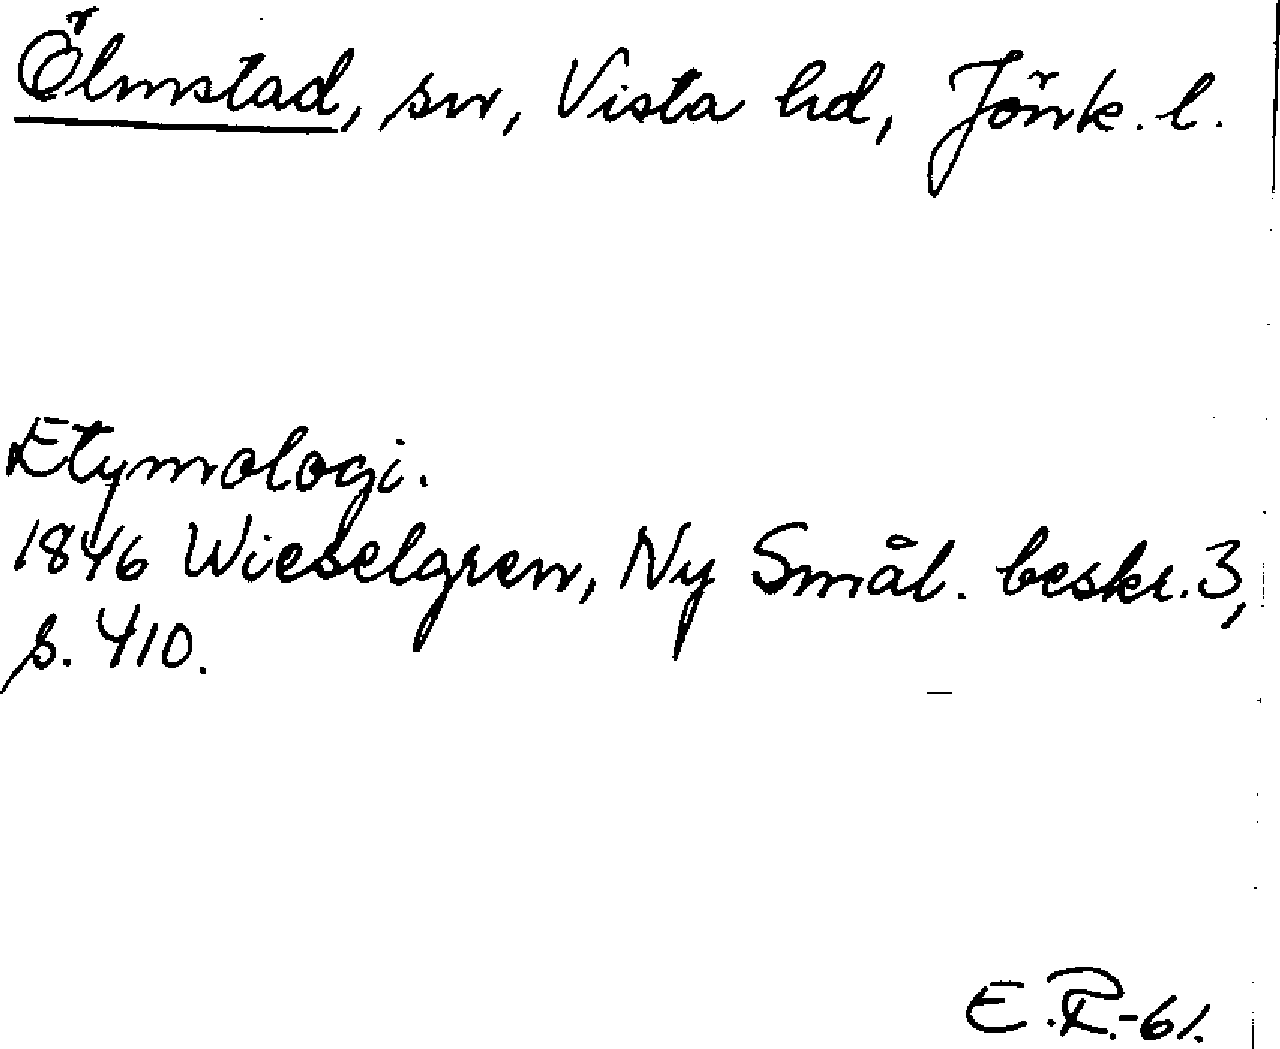 Ölmstad, sn, Vista hd, Jönk. l.
Etymologi.
1846 Wieselgren, Ny Smål. beskr. 3,
s. 410.
E.R.-61.